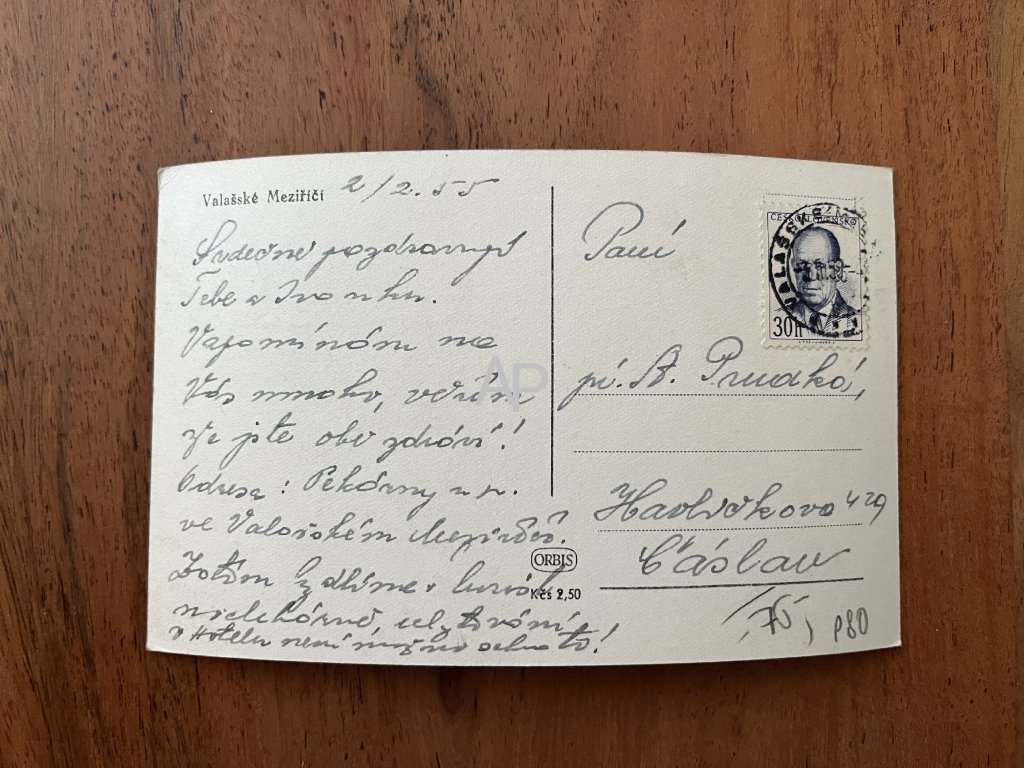 Valašské Meziříčí 2/2. 55
Srdečně pozdravuji
Tebe a Ivonku.
Vzpomínám na
Vás mnoho, věřím
že jste obě zdrávi!
Adresa: Pekárny n. p.
ve Valašském Meziříčí.
Zatím bydlíme v
v Hotelu není možno
ORBIS
Kčs 2,50
Paní
pí. A. Prudká,
Havlíčkova 429
Čáslav
ČESKOSLOVENSKO
VALAŠSKÉ M
30 h
75,
P80
AP